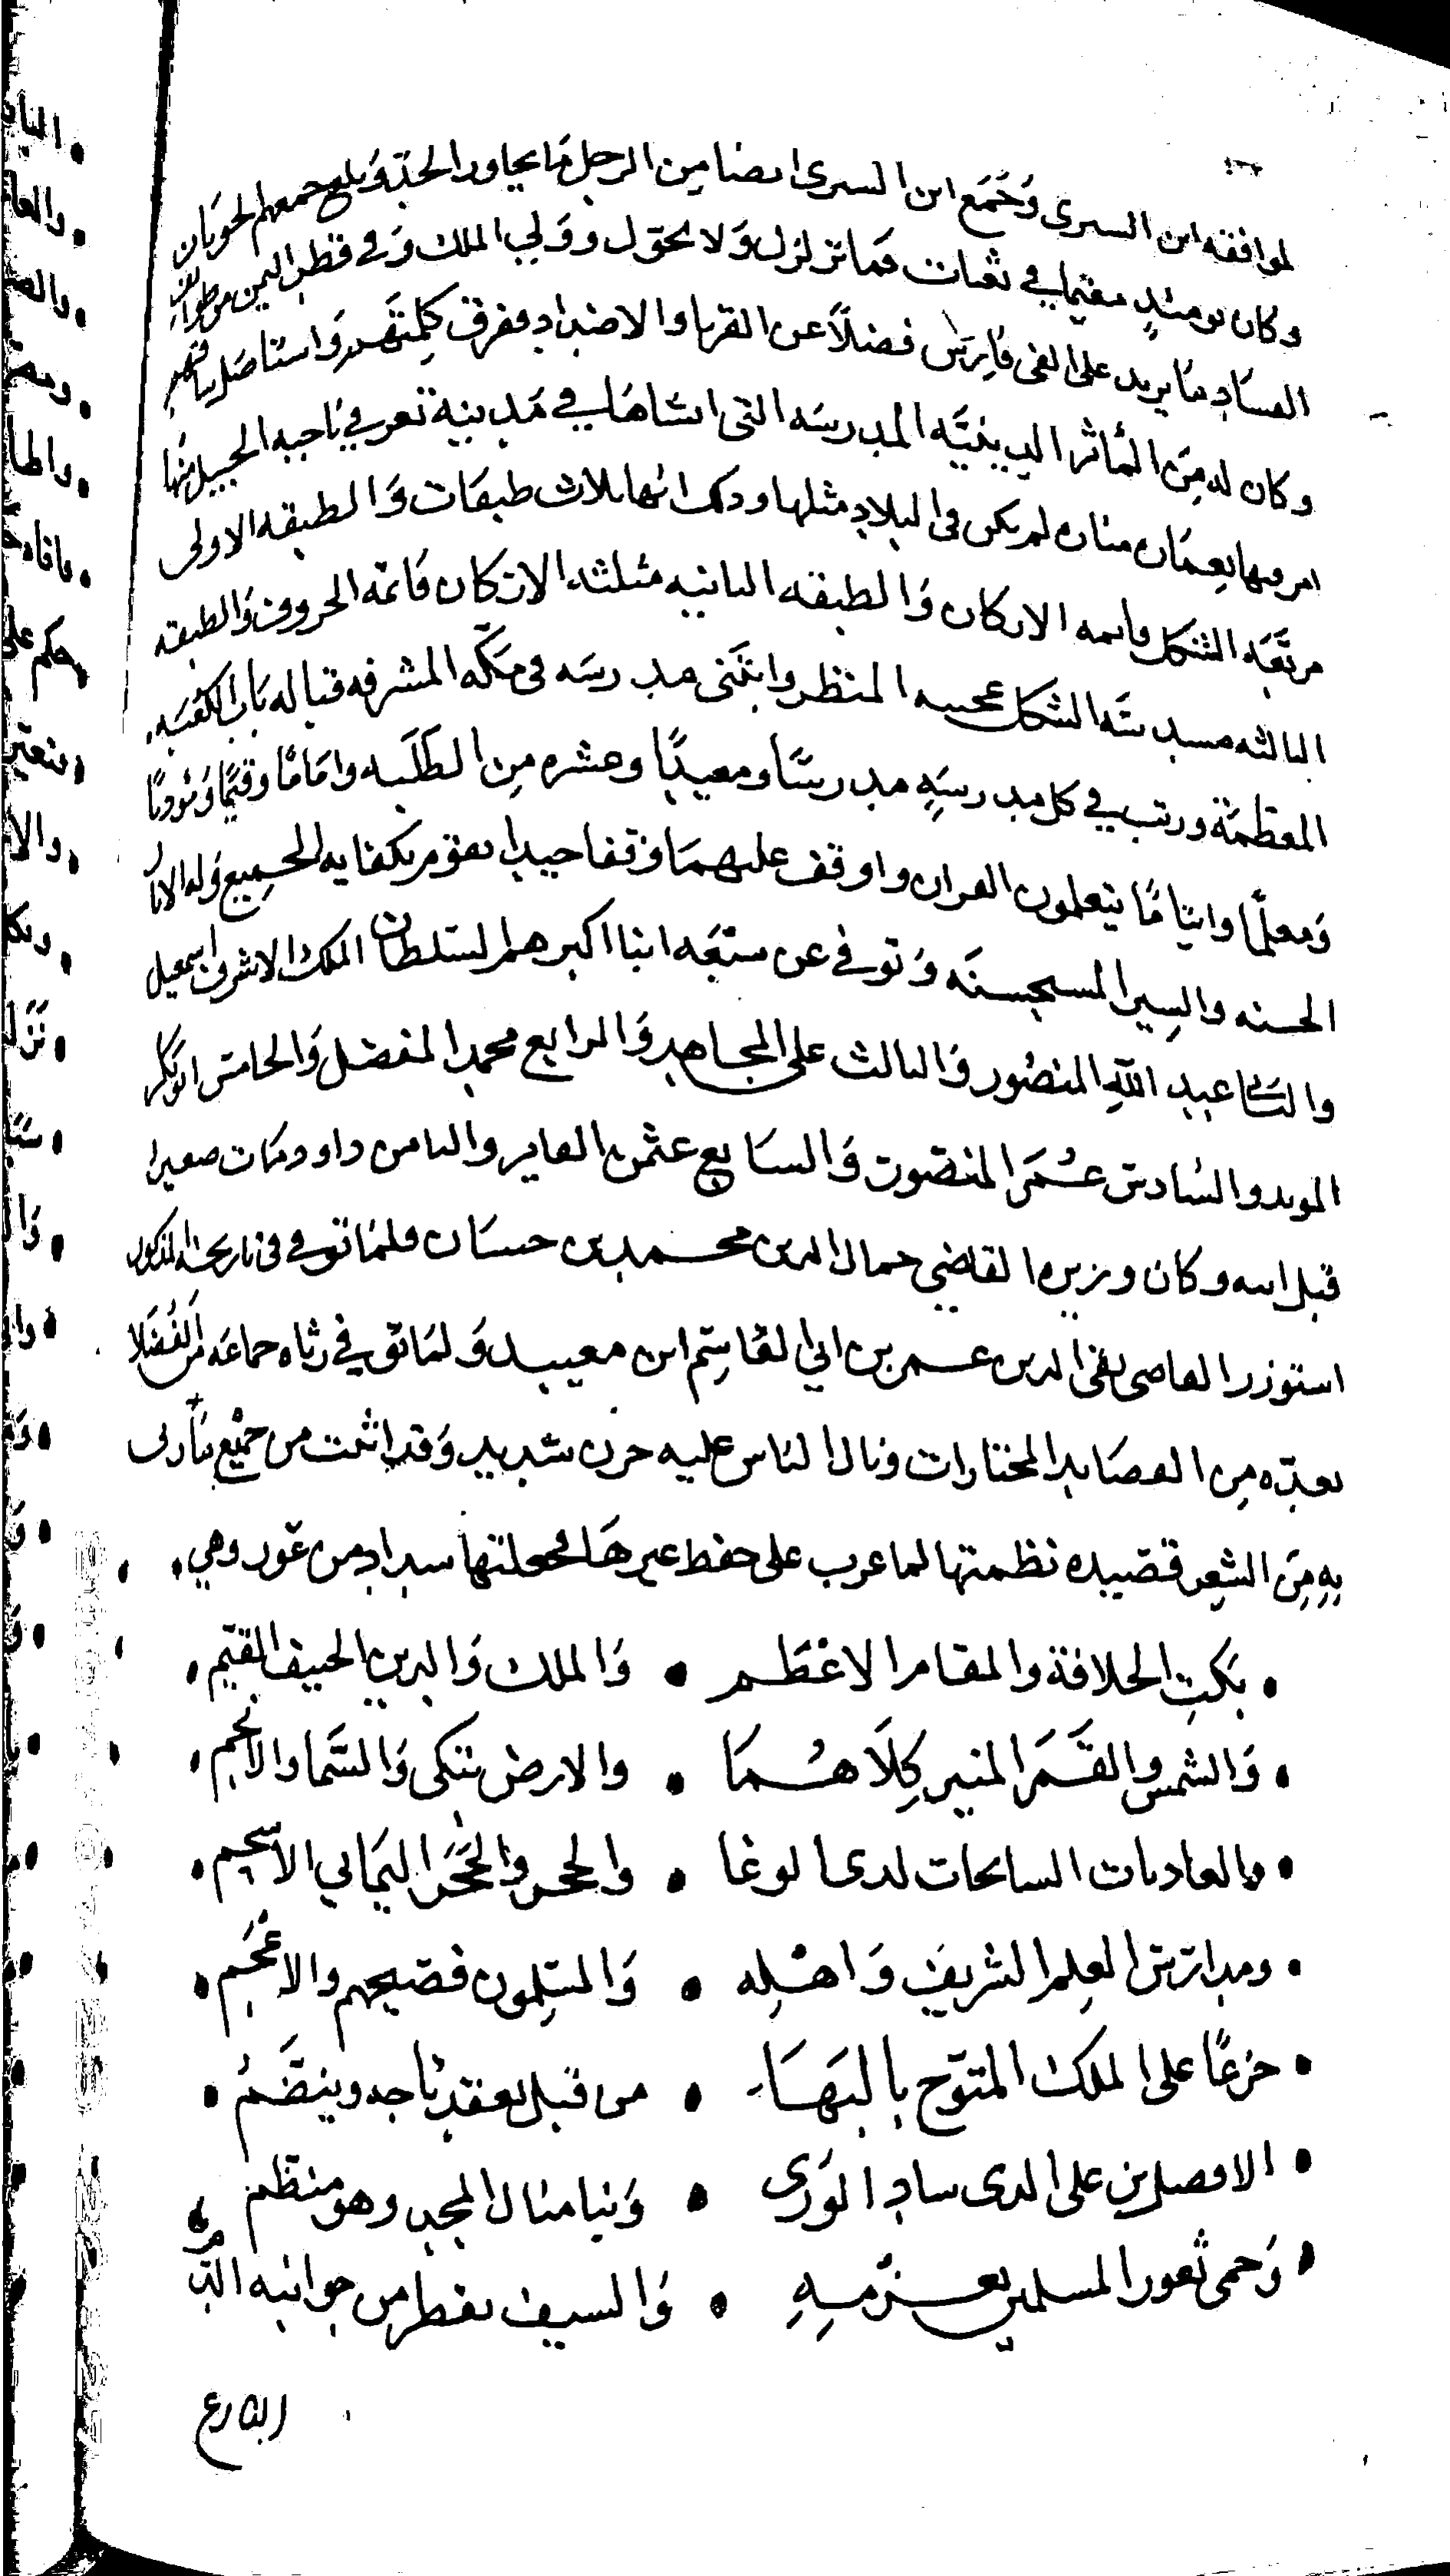 لموافقه ابن السيرى وجمع ابن السيرى ايضا من الرجل ما يجاوز الحد وبلغ جمعهم الحوبان
وكان يومئذٍ مقيما في ثعبات فما تزلزل ولا تحول وولي الملك وفي قطر اليمن من طوايف
الفساد ما يزيد على الفى فارس فضلاً عن القرنا والاضداد ففرق كلمتهم واستاصل شافتهم
وكان له من المأثر الدينيَّه المدرسه التى انشاها في مدينة تعز في ناحيه الجبيل منها
امر فيها بعمارة مناره لم يكن في البلاد مثلها وذلك انها ثلاث طبقات والطبقه الاولى
مربَّعه الشكل قايمه الاركان والطبقه الثانيه مثلثه الاركان قائمه الحروف والطبقه
الثالثه مسدسة الشكل عجيبه المنظر وابتنى مدرسه في مكّه المشرفه قباله باب الكعبه
المعظمة ورتب في كل مدرسةٍ مدرسًا ومعيدًا وعشره من الطلبه واماما وقيما ومؤذنا
ومعلمًا وايتامًا يتعلمون القران واوقف عليهما وقفا جيدا يقوم بكفايه الجميع وله الاثار
الحسنه والسير المستحسنه وتوفي عن سبعه ابنا اكبرهم السلطان الملك الاشرف اسمعيل
والثاني عبد الله المنصور والثالث على المجاهد والرابع محمد المفضل والخامس ابو بكر
المويد والسادس عمر المنصور والسابع عثمن الفايز والثامن داود ومات صغيرا
قبل ابيه وكان وزيره القاضي جمال الدين محمد بن حسان فلما توفي في تاريخه المذكور
استوزر القاصى تقى الدين عمر بن ابي القاسم ابن معيبد ولما توفي رثاه جماعه من الفضلا
بعده من القصايد المختارات ونال الناس عليه حزن شديد وقد اثبت من جميع ما رثى
به من الشعر قصيده نظمتها لما عزب على حفظ غيرها فجعلتها سداد من عوز وهي
بكت الخلافة والمقام الاعظم • والملك والدين الحنيف القيم
والشمس والقمر المنير كلاهما • والارض تبكى والسما والانجم
والعاديات السابحات لدى الوغا • والحجر والحجر اليماني الاسحم
ومدارس العلم الشريف واهله • والمسلمون فصيحهم والاعجم
جزعًا على الملك المتوج بالبها • من قبل يعقد تاجه وينضم
الافضل بن على الذى ساد الورى • وبنا منال المجد وهو منظم
وحمى ثغور المسلمين بعزمه • والسيف يقطر من جوانبه الدم